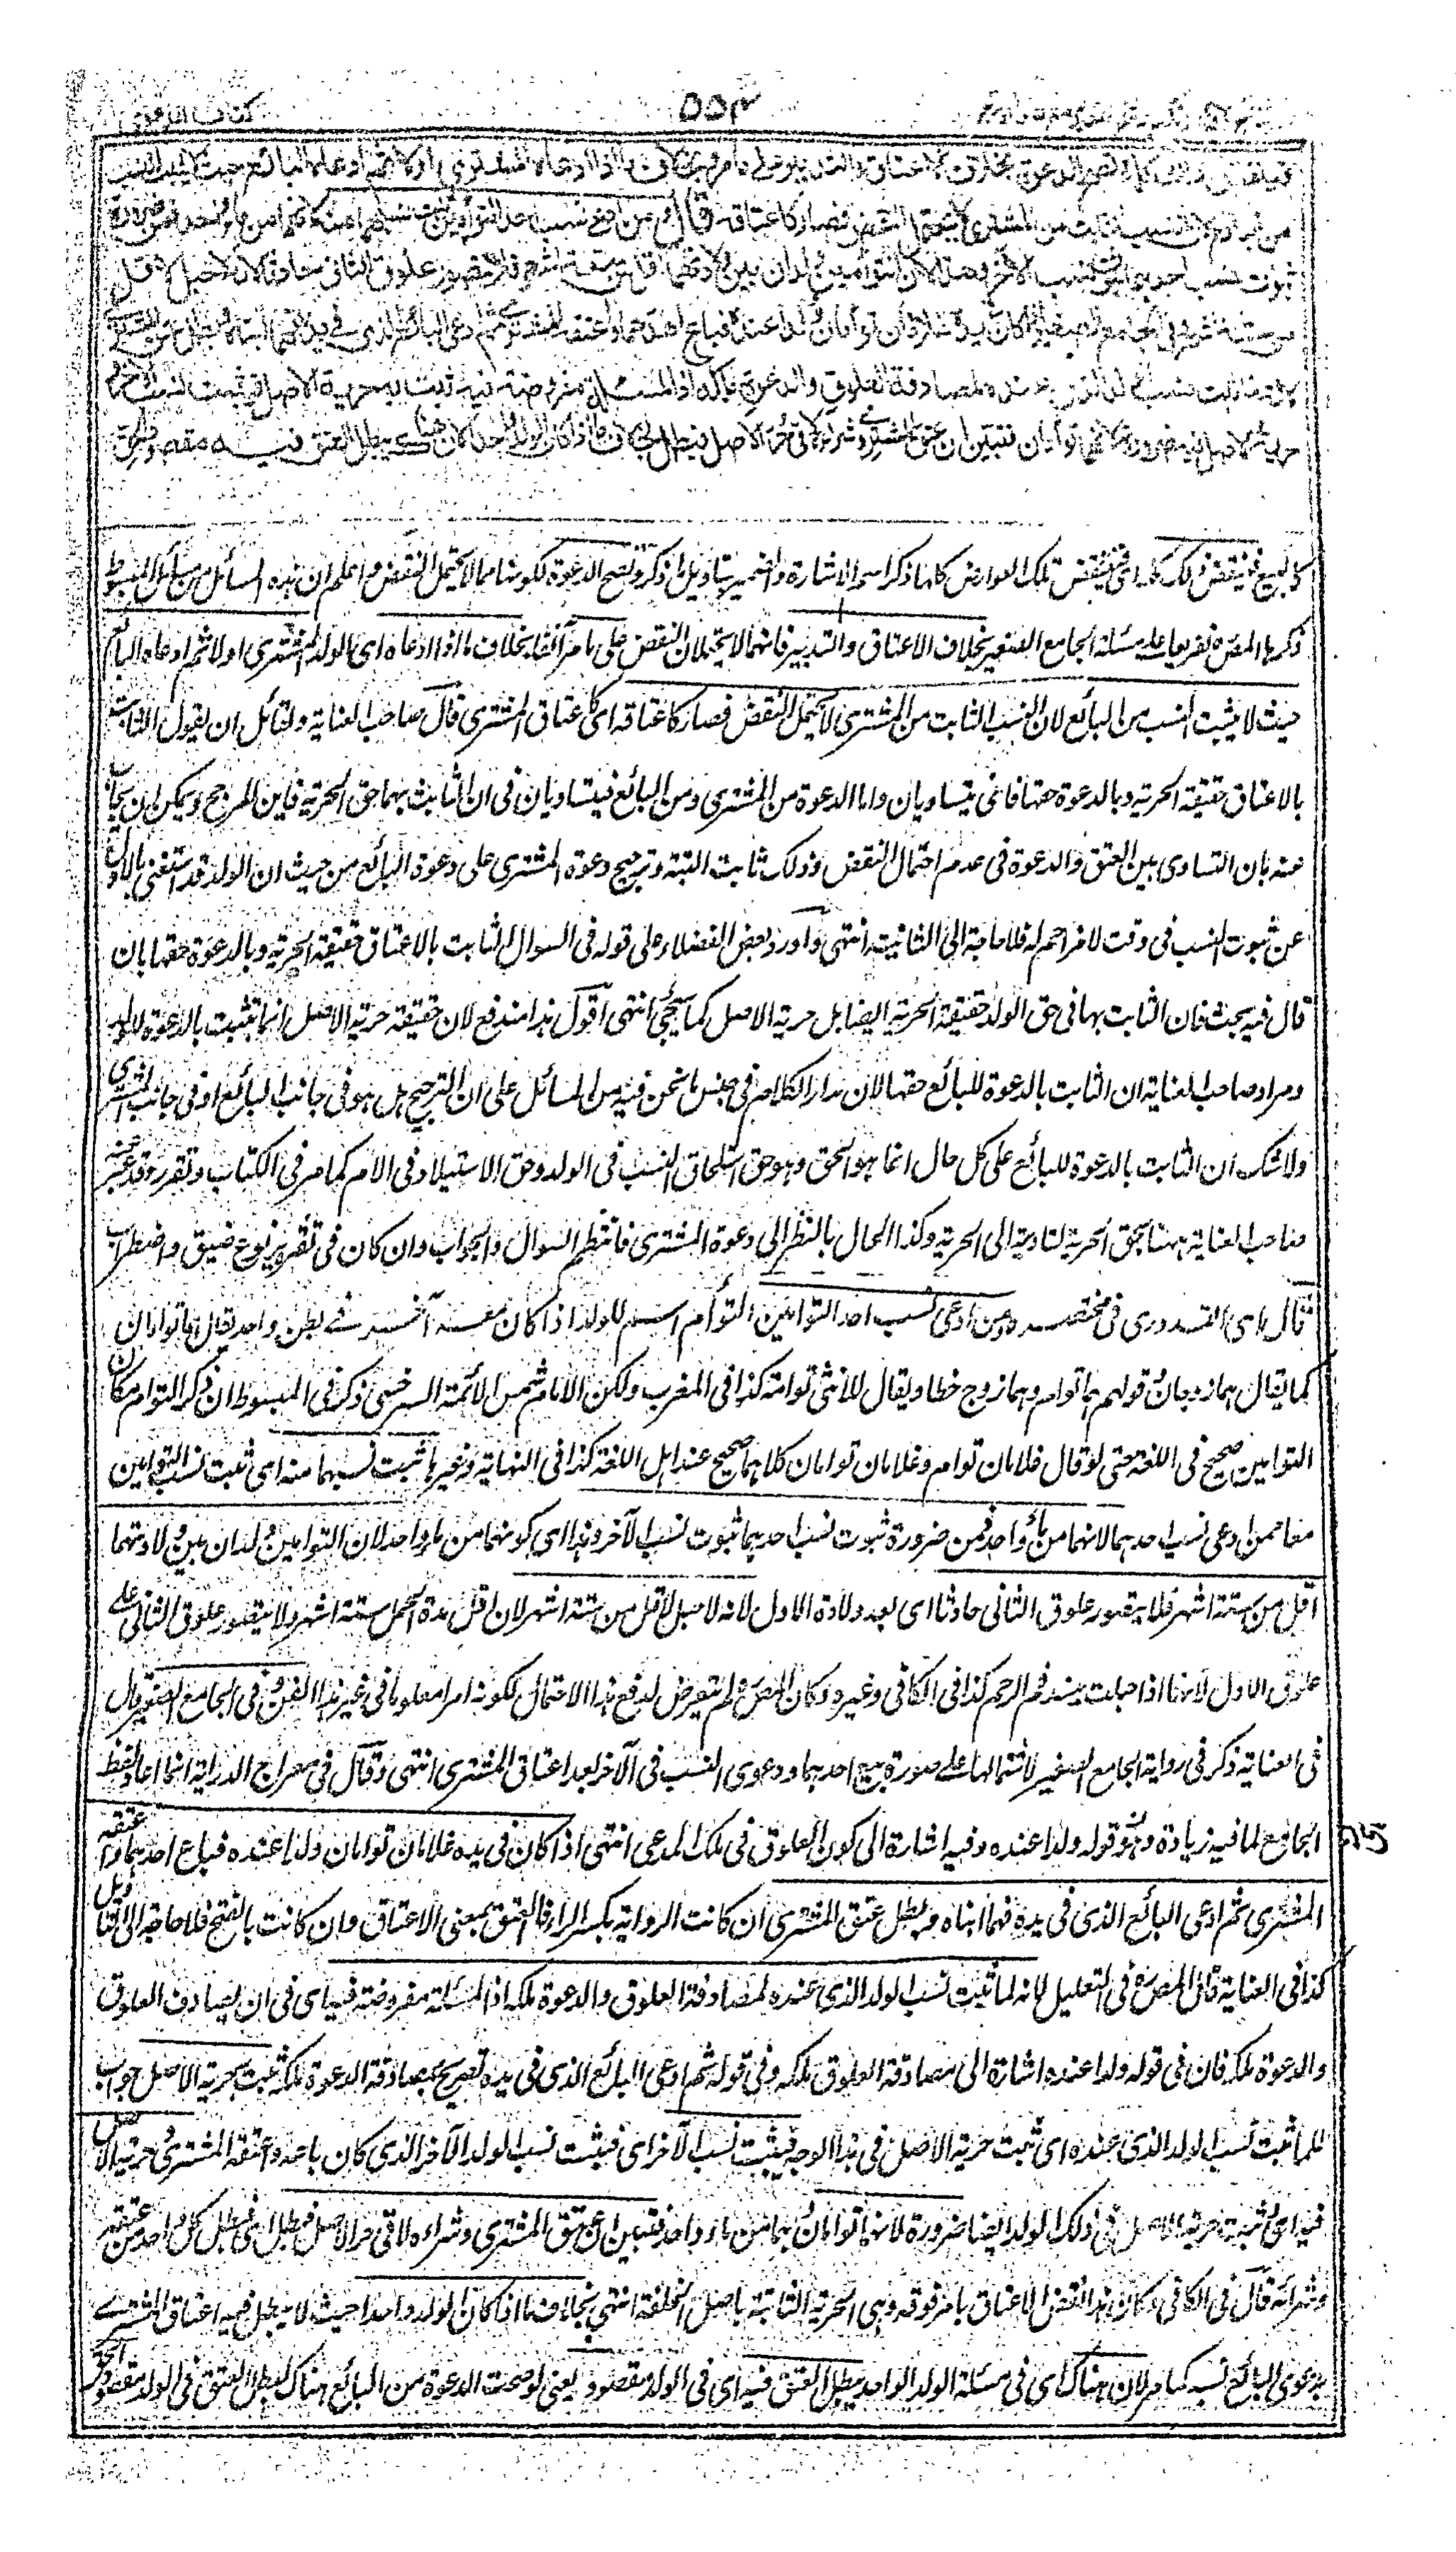 ٥٥٣
كتاب الدعوى
فينتقض ذلك كله وتصح الدعوة بخلاف الاعتاق والتدبير على ما مر وبخلاف ما اذا ادعاه المشترى اولا ثم ادعاه البائع حيث لا يثبت النسب
من البائع لان النسب الثابت من المشترى لا يحتمل النقض فصار كاعتاقه قال ومن ادعى نسب احد التوأمين ثبت نسبهما منه لانهما من ماء واحد فمن ضرورة
ثبوت نسب احدهما ثبوت نسب الآخر وهذا لان التوأمين ولدان بين ولادتهما اقل من ستة اشهر فلا يتصور علوق الثانى حادثا لانه لا حبل لاقل
من ستة اشهر وفى الجامع الصغير اذا كان فى يده غلامان توأمان ولدا عنده فباع احدهما واعتقه المشترى ثم ادعى البائع الذى فى يده فهما ابناه وبطل عتق المشترى
لانه لما ثبت نسب الولد الذى عنده لمصادفة العلوق والدعوة ملكه اذ المسئلة مفروضة فيه ثبت به حرية الاصل فيثبت نسب الآخر
حرية الاصل فيه ضرورة لانهما توأمان فتبين ان عتق المشترى وشراءه لاقى حر الاصل فبطل بخلاف ما اذا كان الولد واحدا لان هناك يبطل العتق فيه مقصودا
كالبيع فينتقض ذلك كله اى فينتقض تلك العوارض كلها ذكر اسم الاشارة والضمير بتاويل ما ذكر وتصح الدعوة لكونها مما لا يحتمل النقض واعلم ان هذه المسائل من مسائل المبسوط
ذكرها المصنف تفريعا على مسئلة الجامع الصغير بخلاف الاعتاق والتدبير فانهما لا يحتملان النقض على ما مر آنفا بخلاف ما اذا ادعاه اى الولد المشترى اولا ثم ادعاه البائع
حيث لا يثبت النسب من البائع لان النسب الثابت من المشترى لا يحتمل النقض فصار كاعتاقه اى كاعتاق المشترى قال صاحب العناية ولقائل ان يقول الثابت
بالاعتاق حقيقة الحرية وبالدعوة حقها فانى يتساويان واما الدعوة من المشترى ومن البائع فيتساويان فى ان الثابت بهما حق الحرية فاين المرجح ويمكن ان يجاب
عنه بان التساوى بين العتق والدعوة فى عدم احتمال النقض وذلك ثابت البتة وترجيح دعوة المشترى على دعوة البائع من حيث ان الولد قد استغنى بالاول
عن ثبوت النسب فى وقت لا مزاحم له فلا حاجة الى الثانية انتهى واورد بعض الفضلاء على قوله فى السوال الثابت بالاعتاق حقيقة الحرية وبالدعوة حقها بان
قال فيه بحث فان الثابت بها فى حق الولد حقيقة الحرية ايضا بل حرية الاصل كما سيجئ انتهى اقول هذا مندفع لان حقيقة حرية الاصل انما تثبت بالدعوة للولد
ومراد صاحب العناية ان الثابت بالدعوة للبائع حقها لان مدار الكلام فى جنس ما نحن فيه من المسائل على ان الترجيح هل هو فى جانب البائع او فى جانب المشترى
ولا شك ان الثابت بالدعوة للبائع على كل حال انما هو الحق وهو حق استلحاق النسب فى الولد وحق الاستيلاد فى الام كما مر فى الكتاب وتقرر وقد عبر عنه
صاحب العناية ههنا بحق الحرية لتاديته الى الحرية وكذا الحال بالنظر الى دعوة المشترى فانتظم السوال والجواب وان كان فى تقريره نوع ضيق واضطراب
قال اى القدورى فى مختصره ومن ادعى نسب احد التوامين التوأم اسم للولد اذا كان معه آخر فى بطن واحد يقال هما توامان
كما يقال هما زوجان وقولهم هما توام وهما زوج خطا ويقال للانثى توامة كذا فى المغرب ولكن الامام شمس الائمة السرخسى ذكر فى المبسوط ان ذكر التوام مكان
التوامين صحيح فى اللغة حتى لو قال غلامان توام وغلامان توامان كلاهما صحيح عند اهل اللغة كذا فى النهاية وغيرها ثبت نسبهما منه اى ثبت نسب التوامين
معا ممن ادعى نسب احدهما لانهما من ماء واحد فمن ضرورة ثبوت نسب احدهما ثبوت نسب الآخر وهذا اى كونهما من ماء واحد لان التوامين ولدان بين ولادتهما
اقل من ستة اشهر فلا يتصور علوق الثانى حادثا اى بعد ولادة الاول لانه لا حبل لاقل من ستة اشهر لان اقل مدة الحمل ستة اشهر ولا يتصور علوق الثانى على
علوق الاول لانها اذا حبلت ينسد فم الرحم كذا فى الكافى وغيره وكان المصنف لم يتعرض لدفع هذا الاحتمال لكونه امرا معلوما فى غير هذا الفن وفى الجامع الصغير قال
فى العناية ذكر فى رواية الجامع الصغير لاشتمالها على صورة بيع احدهما ودعوى النسب فى الآخر بعد اعتاق المشترى انتهى وقال فى معراج الدراية انما اعاد لفظ
الجامع لما فيه زيادة وهو قوله ولدا عنده وفيه اشارة الى كون العلوق فى ملك المدعى انتهى اذا كان فى يده غلامان توامان ولدا عنده فباع احدهما واعتقه
المشترى ثم ادعى البائع الذى فى يده فهما ابناه وبطل عتق المشترى ان كانت الرواية بكسر الراء فالعتق بمعنى الاعتاق وان كانت بالفتح فلا حاجة الى التاويل
كذا فى العناية قال المصنف فى التعليل لانه لما ثبت نسب الولد الذى عنده لمصادفة العلوق والدعوة ملكه اذ المسئلة مفروضة فيه اى فى ان يصادف العلوق
والدعوة ملكه فان فى قوله ولدا عنده اشارة الى مصادفة العلوق ملكه وفى قوله ثم ادعى البائع الذى فى يده تصريح بمصادفة الدعوة ملكه ثبت حرية الاصل جواب
لما ثبت نسب الولد الذى عنده اى ثبت حرية الاصل فى هذا الوجه فيثبت نسب الآخر اى فيثبت نسب الولد الآخر الذى كان باعه واعتقه المشترى وحرية الاصل
فيه اى ثبت حرية الاصل فى ذلك الولد ايضا ضرورة لانهما توامان هما من ماء واحد فتبين ان عتق المشترى وشراءه لاقى حر الاصل فبطل اى فبطل كل واحد من عتقه
وشرائه قال فى الكافى وكان هذا نقض الاعتاق بامر فوقه وهى الحرية الثابتة باصل الخلقة انتهى بخلاف ما اذا كان الولد واحدا حيث لا يبطل فيه اعتاق المشترى
بدعوى البائع نسبه كما مر لان هناك اى فى مسئلة الولد الواحد يبطل العتق فيه اى فى الولد مقصودا يعنى لو صحت الدعوة من البائع هناك لبطل العتق فى الولد مقصودا